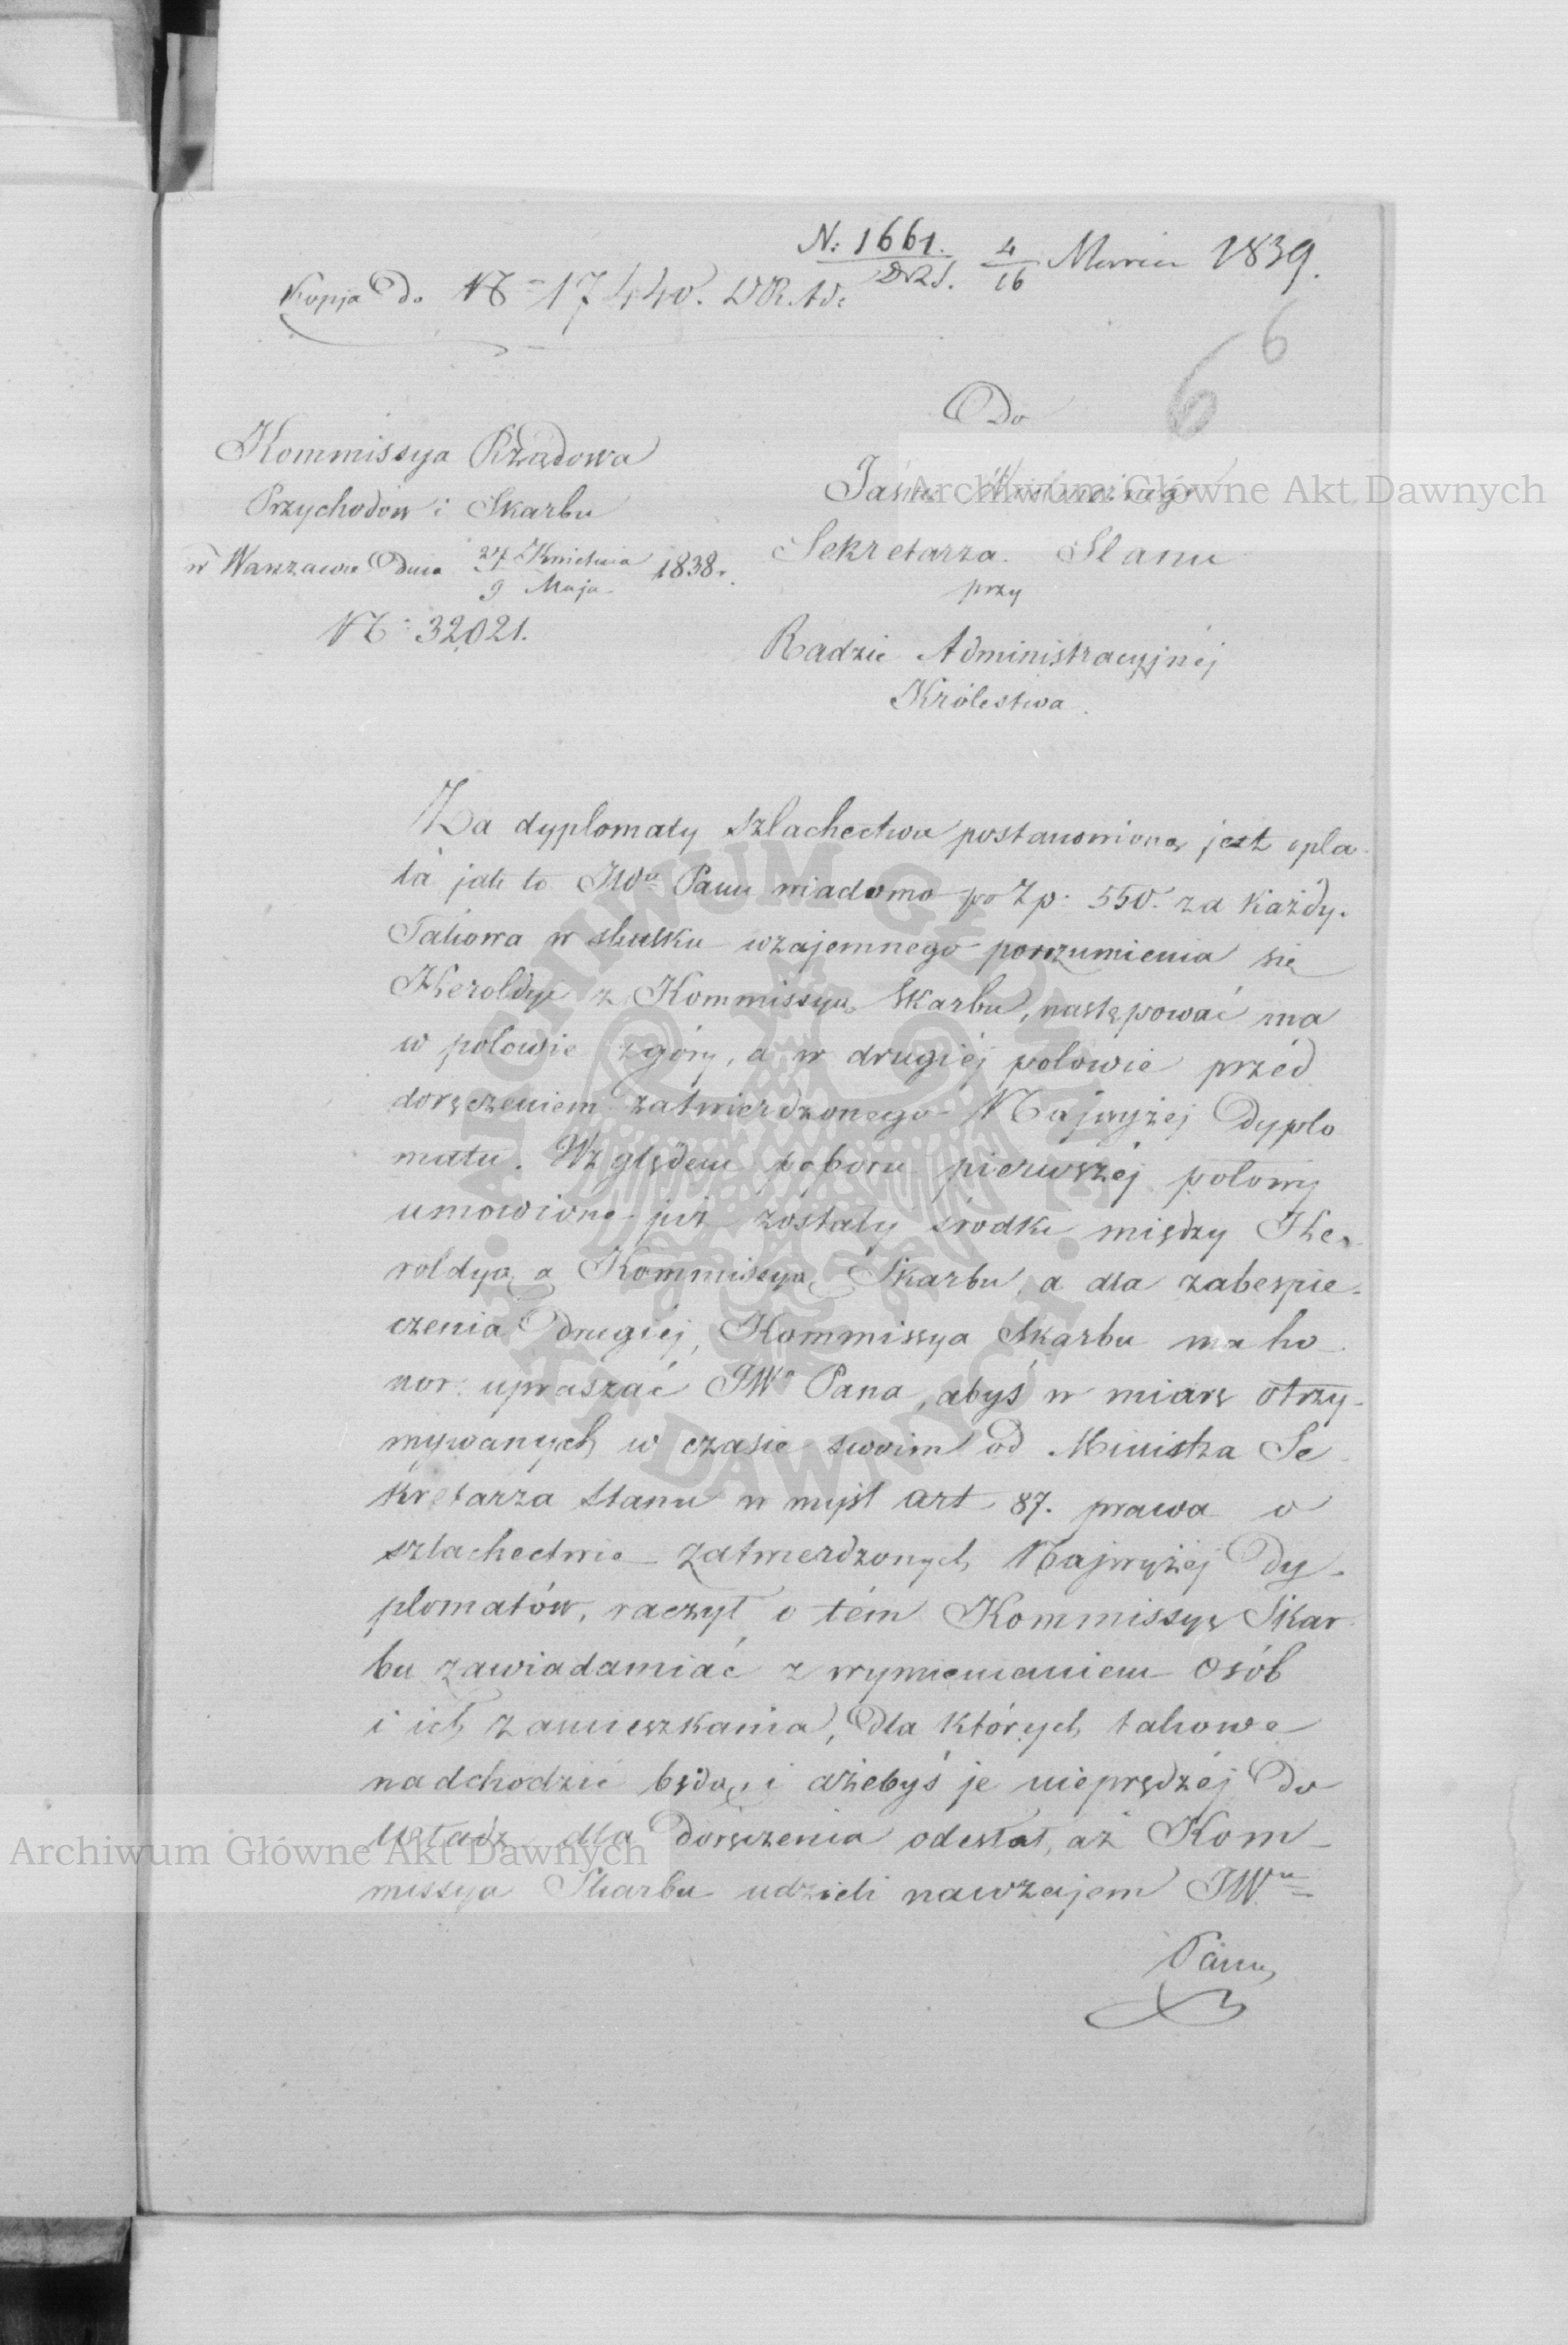 N: 1661. 4/16 Marca 1839.
D.R.S.
Kopja do N° 17440. D.R.Ad:
6 6
Do
Kommissya Rządowa
Przychodów i Skarbu
w Warszawie Dnia 27 Kwietnia / 9 Maja 1838.
N° 32,021.
Jaśnie Wielmożnego
Sekretarza Stanu
przy
Radzie Administracyjnéj
Królestwa.
Za dyplomaty szlachectwa postanowioną jest opła-
ta jak to JWu Panu wiadomo po Zp: 550. za każdy.
Takowa w skutku wzajemnego porozumienia się
Heroldyi z Kommissyą Skarbu, następować ma
w połowie zgóry, a w drugiéj połowie przéd
doręczeniem zatwierdzonego Najwyżéj Dyplo
matu. Względem poboru pierwszéj połowy
umówione już zostały środki między He-
roldyą a Kommissyą Skarbu, a dla zabespie-
czenia drugiéj, Kommissya Skarbu ma ho-
nor upraszać JWo Pana, abyś w miarę otrzy-
mywanych w czasie swoim od Ministra Se
kretarza Stanu w myśl art 87. prawa o
szlachectwie zatwierdzonych Najwyżéj Dy-
plomatów, raczył o tém Kommissyę Skar-
bu zawiadamiać z wymienieniem osób
i ich zamieszkania, dla których takowe
nadchodzić będą, i ażebyś je nieprędzéj do
Władz dla doręczenia odesłał, aż Kom-
missya Skarbu udzieli nawzajem JWu
Panu
Archiwum Główne Akt Dawnych
Archiwum Główne Akt Dawnych
ARCHIWUM GŁÓWNE · AKT DAWNYCH ·